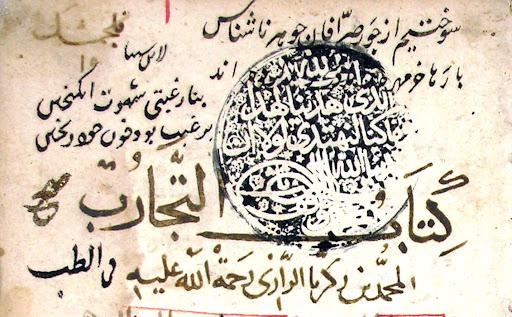 سوختیم از جور صرّافان جوهر ناشناس
بارها خرمهره اند
بنا رغبتی شهوت انگیختن
برغبت بود خون خود ریختن
الحمد لله
الذي هدانا لهذا
وما كنا لنهتدي لولا ان
هدانا الله
كتاب التّجارب
لمحمد بن زكريا الرّازي رحمة الله عليه في الطب